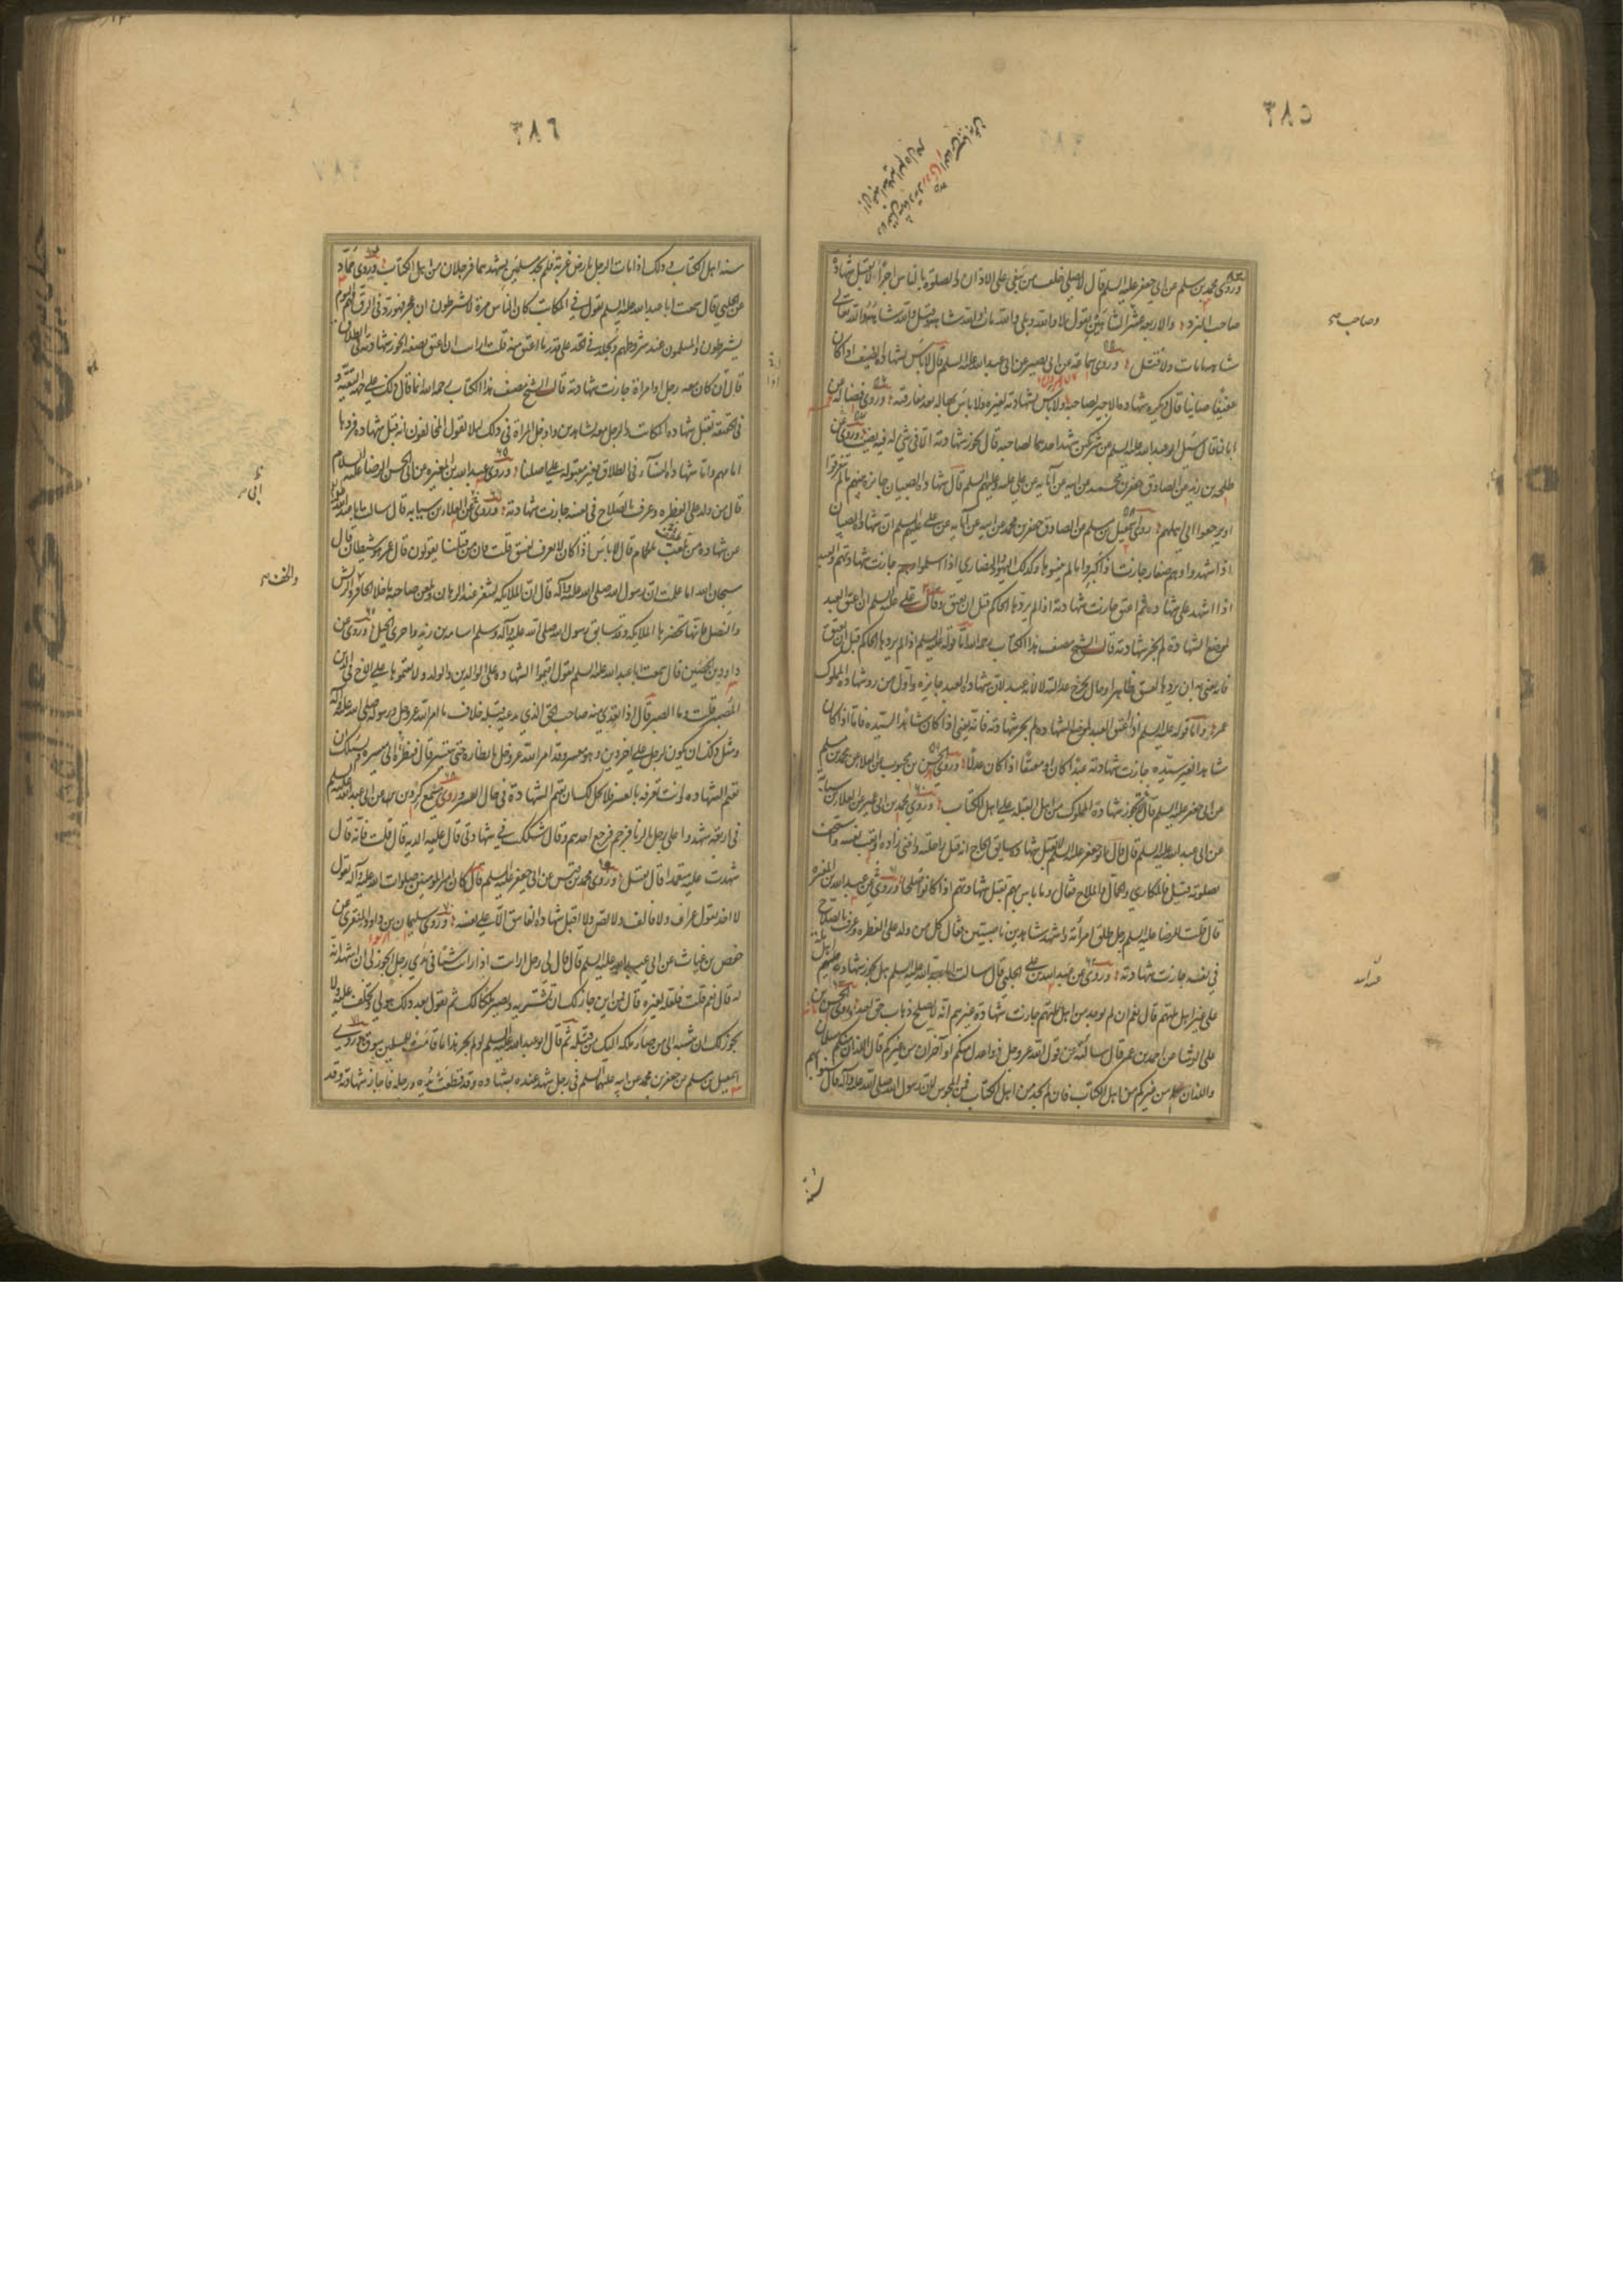 ٣٨٥
وروى محمد بن مسلم عن ابى جعفر عليه السلم قال لا يصلى خلف من يبغى على الاذان والصلوة بالناس اجرا ولا يقبل شهادة
صاحب النرد والاربعة عشر الشاهين يقول لا والله وبلى والله مات والله شاه وقتل والله شاه والله تعالى
شاهه ما مات ولا قتل وروى سماعة عن ابى بصير عن ابى عبد الله عليه السلم قال لا باس بشهادة الضيف اذا كان
عفيفا صاينا قال ويكره شهادة الاجير لصاحبه ولا باس بشهادته لغيره ولا باس بها له بعد مفارقته وروى فضالة عن
ابان قال سئل ابو عبد الله عليه السلم عن شريكين شهد احدهما لصاحبه قال تجوز شهادته الا فى شى له فيه نصيب وروى عن
طلحة بن زيد عن الصادق جعفر بن محمد عن ابيه عن آبايه عن على عليه وعليهم السلم قال شهادة الصبيان جايزة بينهم ما لم يتفرقوا
او يرجعوا الى اهلهم وروى اسمعيل بن مسلم عن الصادق جعفر بن محمد عن ابيه عن آبايه عن على عليهم السلم ان شهادة الصبيان
اذا اشهدوا وهم صغار جازت اذا كبروا ما لم ينسوها وكذلك اليهود والنصارى اذا اسلموا جازت شهادتهم والعبد
اذا اشهد على شهادة ثم اعتق جازت شهادته اذا لم يردها الحاكم قبل ان يعتق وقال على عليه السلم ان اعتق العبد
لموضع الشهادة لم تجز شهادته قال الشيخ مصنف هذا الكتاب رحمه الله اما قوله عليه السلم اذا لم يردها الحاكم قبل ان يعتق
فانه يعنى به ان يردها لفسق ظاهر او حال يجرح عدالته لا لانه عبد لان شهادة العبد جايزة واول من رد شهادة المملوك
عمر واما قوله عليه السلم اذا اعتق العبد لموضع الشهادة لم تجز شهادته فانه يعنى اذا كان شاهدا لسيده فاما اذا كان
شاهدا لغير سيده جازت شهادته عبدا كان او معتقا اذا كان عدلا وروى الحسن بن محبوب عن العلا عن محمد بن مسلم
عن ابى جعفر عليه السلم قال تجوز شهادة المملوك من اهل القبلة على اهل الكتاب وروى محمد بن ابى عمير عن العلا بن سيابة
عن ابى عبد الله عليه السلم قال قال ابو جعفر عليه السلم لا تقبل شهادة سابق الحاج انه قتل راحلته وافنى زاده واتعب نفسه واستخف
بصلوته قيل فالمكارى والجمال والملاح فقال وما باس بهم تقبل شهادتهم اذا كانوا صلحا وروى عن عبد الله بن المغيرة
قال قلت للرضا عليه السلم رجل طلق امرأته واشهد شاهدين ناصبيين فقال كل من ولد على الفطرة وعرف بالصلاح
فى نفسه جازت شهادته وروى عن عبيد الله بن على الحلبى قال سالت ابا عبد الله عليه السلم هل تجوز شهادة اهل الذمة
على غير اهل ملتهم قال نعم ان لم يوجد من اهل ملتهم جازت شهادة غيرهم انه لا يصلح ذهاب حق احد وروى الحسن بن
على الوشا عن احمد بن عمر قال سالته عن قول الله عز وجل ذوا عدل منكم او آخران من غيركم قال اللذان منكم مسلمان
واللذان من غيركم من اهل الكتاب فان لم تجد من اهل الكتاب فمن المجوس لان رسول الله صلى الله عليه وآله قال سنوا بهم
وصاحب
عبد الله
سنة
٣٨٦
سنة اهل الكتاب وذلك اذا مات الرجل بارض غربة فلم يجد مسلمين يشهدهما فرجلان من اهل الكتاب وروى حماد
عن الحلبى قال سمعت ابا عبد الله عليه السلم يقول فى المكاتب كان الناس مرة لا يشترطون ان عجز فهو رد فى الرق فهم اليوم
يشترطون والمسلمون عند شروطهم ويجلد فى الحد على قدر ما اعتق منه قلت ارايت ان اعتق نصفه اتجوز شهادته فى الطلاق
قال ان كان معه رجل او امرأة جازت شهادته قال الشيخ مصنف هذا الكتاب رحمه الله انما قال ذلك على جهة التقية و
فى الحقيقة تقبل شهادة المكاتب والرجل معه بشاهدين وادخل المراة فى ذلك لئلا يقول المخالفون انه قبل شهادة قد ردها
امامهم واما شهادة النسآء فى الطلاق فغير مقبولة على اصلنا وروى عبد الله بن المغيرة عن ابى الحسن الرضا عليه السلام
قال من ولد على الفطرة وعرف بالصلاح فى نفسه جازت شهادته وروى عن العلا بن سيابة قال سالت ابا عبد الله
عن شهادة من يلعب بالحمام قال لا باس اذا كان لا يعرف بفسق قلت فان من قبلنا يقولون قال عمر هو شيطان قال
سبحان الله اما علمت ان رسول الله صلى الله عليه وآله قال ان الملايكة لتنفر عند الرهان وتلعن صاحبه ما خلا الحافر والريش
والنصل فانها تحضرها الملايكة وقد سابق رسول الله صلى الله عليه وآله وسلم اسامة بن زيد واجرى الخيل وروى عن
داود بن الحصين قال سمعت ابا عبد الله عليه السلم يقول اقيموا الشهادة على الوالدين والولد ولا تقيموها على الاخ فى الدين
الضير قلت وما الضير قال اذا تعدى فيه صاحب الحق الذى يدعيه قبله خلاف ما امر الله عز وجل ورسوله صلى الله عليه وآله
ومثل ذلك ان يكون لرجل على آخر دين وهو معسر وقد امر الله عز وجل بانظاره حتى ييسر قال فنظرة الى ميسرة ويسئلك ان
تقيم الشهادة وانت تعرفه بالعسر فلا يحل لك ان تقيم الشهادة فى حال العسر وروى مسمع كردين عن ابى عبد الله عليه السلم
فى اربعة شهدوا على رجل بالزنا فرجم فرجع احدهم وقال شككت فى شهادتى قال عليه الدية قال قلت فانه قال
شهدت عليه متعمدا قال يقتل وروى محمد بن قيس عن ابى جعفر عليه السلم قال كان امير المومنين صلوات الله عليه وآله يقول
لا آخذ بقول عراف ولا قائف ولا لص ولا اقبل شهادة الفاسق الا على نفسه وروى سليمان بن داود المنقرى عن
حفص بن غياث عن ابى عبد الله عليه السلم قال قال لى رجل ارايت اذا رايت شيئا فى يدى رجل ايجوز لى ان اشهد انه
له قال نعم قلت فلعله لغيره قال فمن اين جاز لك ان تشتريه ويصير ملكا لك ثم تقول بعد ذلك هو لى وتحلف عليه ولا
يجوز لك ان تنسبه الى من صار ملكه اليك من قبله ثم قال ابو عبد الله عليه السلم لو لم يجز هذا ما قامت للمسلمين سوق وروى
اسمعيل بن مسلم عن جعفر بن محمد عن ابيه عليهما السلم فى رجل شهد عنده بشهادة وقد قطعت يده ورجله فاجاز شهادته وقد
والخف